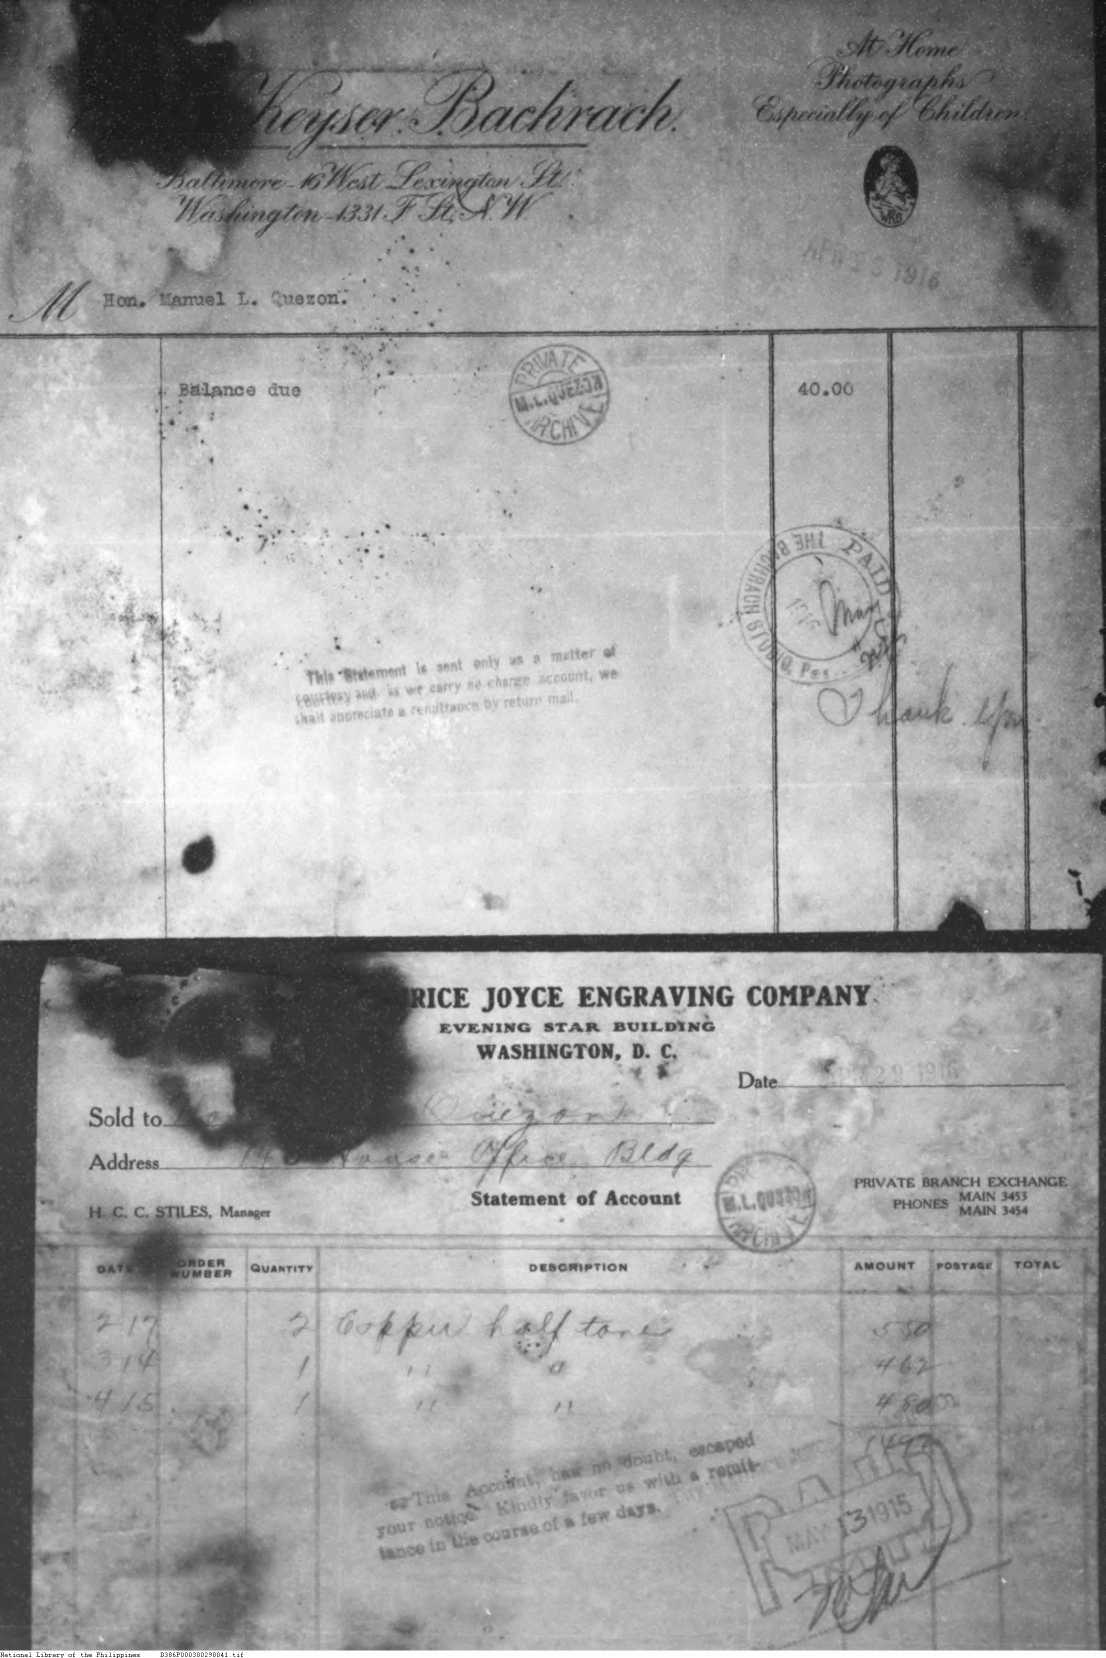 At Home
Photographs
Especially of Children.
Keyser Bachrach.
Baltimore - 16 West Lexington St.
Washington - 1331 F St. N.W.
WKB
APR 1916
M Hon. Manuel L. Quezon.
Balance due 40.00
PRIVATE
M.L. QUEZON
ARCHIVE
THE BACHRACH STUDIO
PAID
Per
This Statement is sent only as a matter of
courtesy and as we carry no charge account, we
shall appreciate a remittance by return mail.
Thank you
RICE JOYCE ENGRAVING COMPANY
EVENING STAR BUILDING
WASHINGTON, D. C.
Date 29 1916
Sold to Quezon
Address House Office Bldg
Statement of Account
PRIVATE BRANCH EXCHANGE
PHONES MAIN 3453
MAIN 3454
H. C. C. STILES, Manager
PRIVATE
M.L. QUEZON
ARCHIVE
DATE ORDER NUMBER QUANTITY DESCRIPTION AMOUNT POSTAGE TOTAL
2 17 2 Copper half tone 5 50
3 14 1 " " 4 62
4 15 1 " " 4 80
14 92
This Account, has no doubt, escaped
your notice. Kindly favor us with a remit-
tance in the course of a few days.
PAID
MAY 13 1915
National Library of the Philippines D386P000380298041.tif